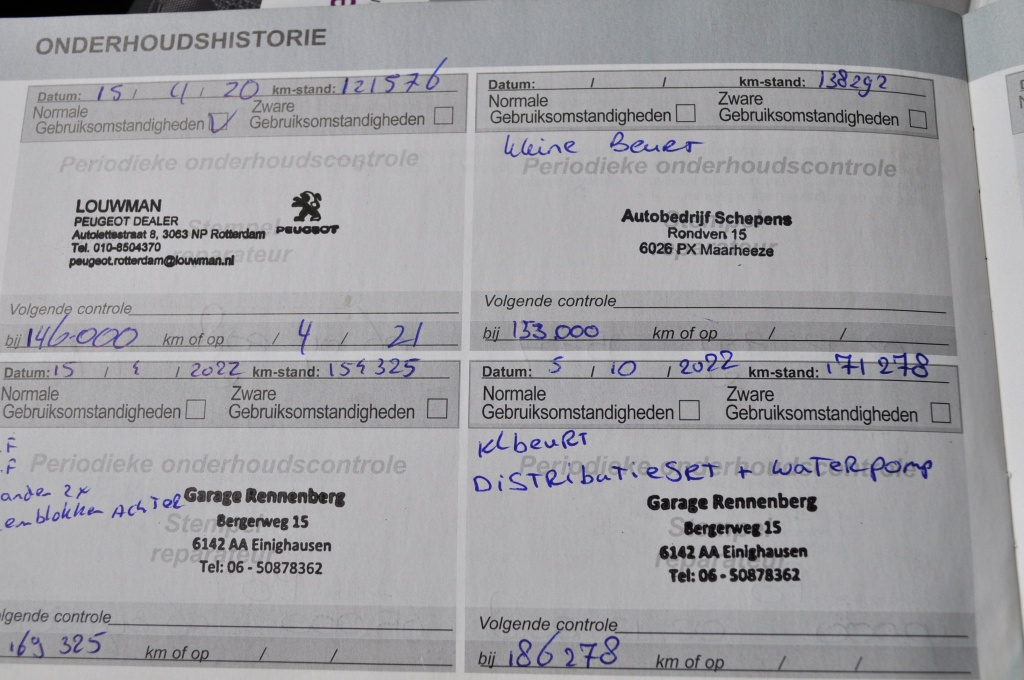 ONDERHOUDSHISTORIE
Datum: 15 / 4 / 20 km-stand: 121576
Normale Gebruiksomstandigheden V Zware Gebruiksomstandigheden
Periodieke onderhoudscontrole
LOUWMAN
PEUGEOT DEALER
Autolettestraat 8, 3063 NP Rotterdam
Tel. 010-8504370
peugeot.rotterdam@louwman.nl
PEUGEOT
Stempel
reparateur
Volgende controle
bij 146.000 km of op / 4 / 21
Datum: / / km-stand: 138292
Normale Gebruiksomstandigheden Zware Gebruiksomstandigheden
Kleine Beurt
Periodieke onderhoudscontrole
Autobedrijf Schepens
Rondven 15
6026 PX Maarheeze
Volgende controle
bij 153.000 km of op / /
Datum: 15 / 4 / 2022 km-stand: 154325
Normale Gebruiksomstandigheden Zware Gebruiksomstandigheden
.F
.F
Periodieke onderhoudscontrole
anden 2x
emblokken ACHTER
Garage Rennenberg
Bergerweg 15
6142 AA Einighausen
Tel: 06 - 50878362
Stempel
reparateur
lgende controle
169 325 km of op / /
Datum: 5 / 10 / 2022 km-stand: 171 278
Normale Gebruiksomstandigheden Zware Gebruiksomstandigheden
Kl beuRT
Periodieke onderhoudscontrole
DiSTRibuTieSET + WATERPOMP
Garage Rennenberg
Bergerweg 15
6142 AA Einighausen
Tel: 06 - 50878362
Volgende controle
bij 186278 km of op / /